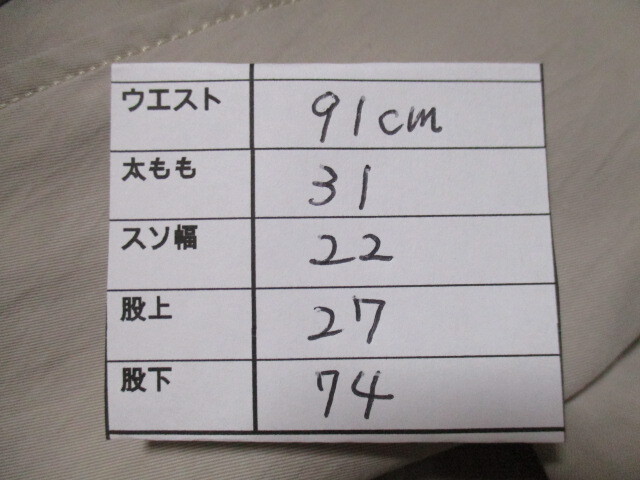 ウエスト 91cm
太もも 31
スソ幅 22
股上 27
股下 74